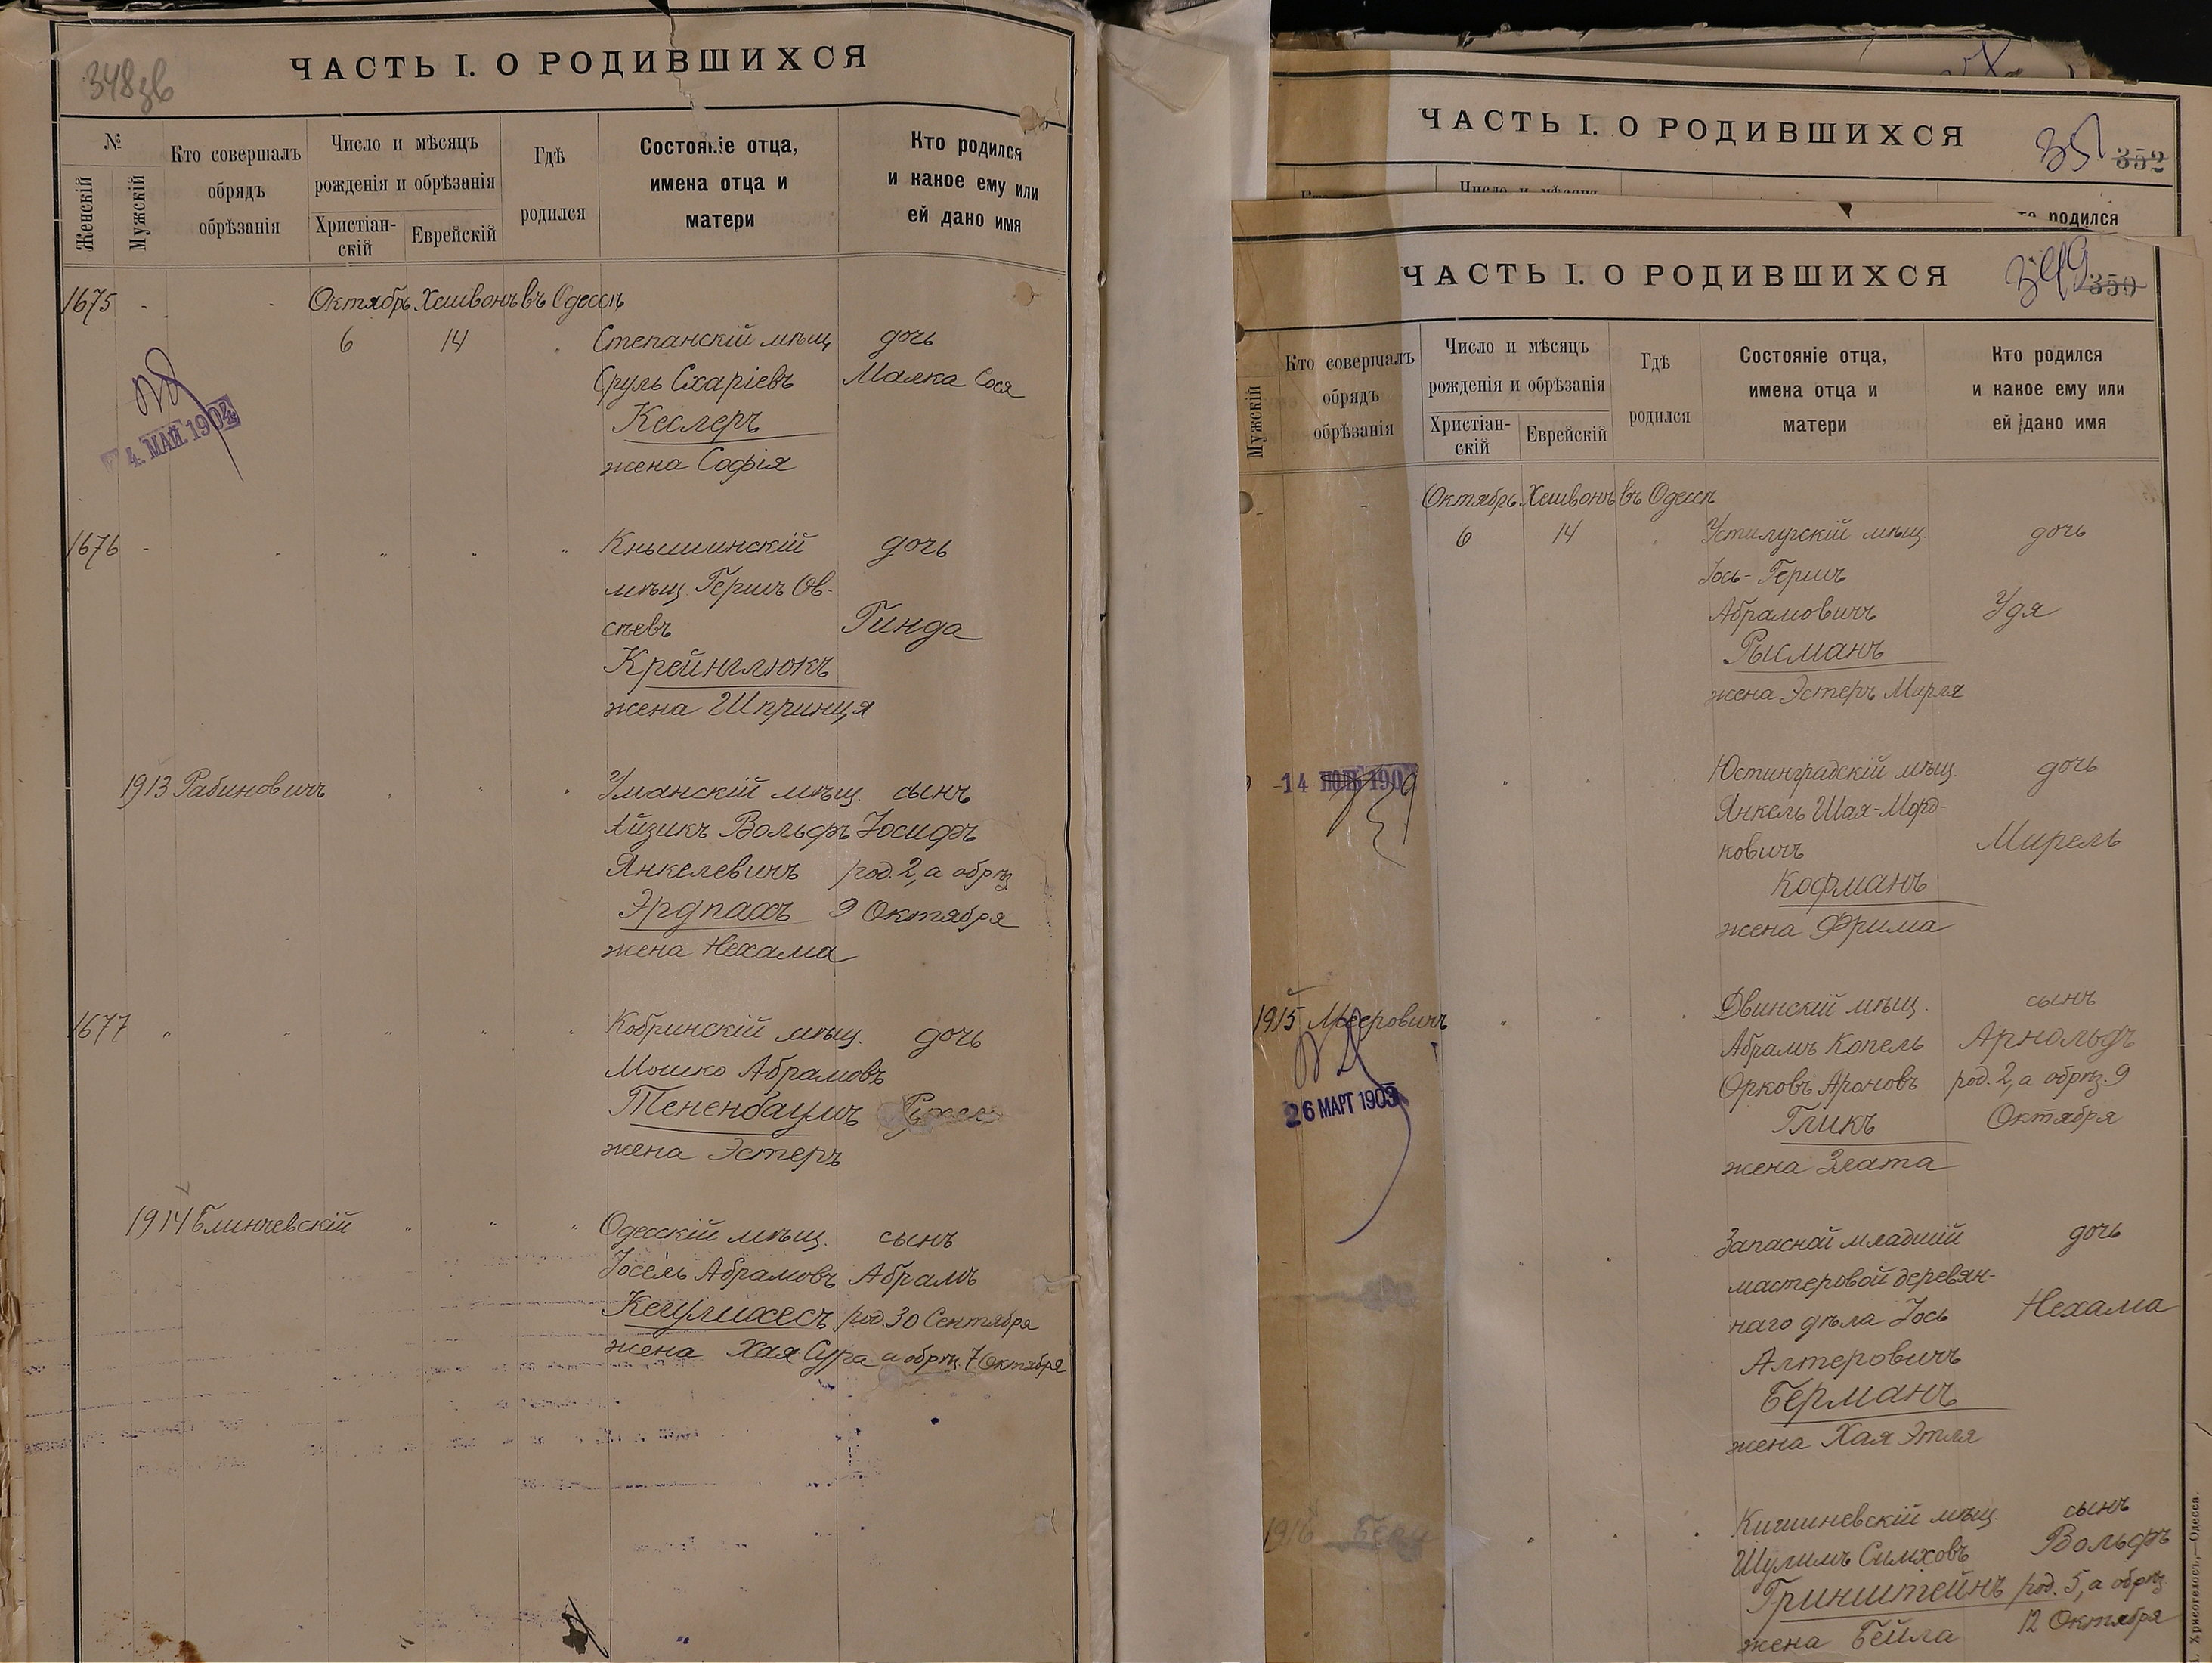 348зв
ЧАСТЬ I. О РОДИВШИХСЯ
№
Женскій
Мужскій
Кто совершалъ
обрядъ
обрѣзанія
Число и мѣсяцъ
рожденія и обрѣзанія
Христіан-
скій
Еврейскій
Гдѣ
родился
Состояніе отца,
имена отца и
матери
Кто родился
и какое ему или
ей дано имя
1675 Октябр. Хешвонъ въ Одессѣ
6 14 Степанскій мѣщ дочь
Сруль Схаріевъ Малка Сося
Кеслеръ
жена Софія
4. МАЙ. 1904
1676 Кнышинскій дочь
мѣщ. Гершъ Ов-
сѣевъ Гинда
Крейнглюкъ
жена Шпринця
1913 Рабиновичъ Уманскій мѣщ. сынъ
Айзикъ Вольфъ Іосифъ
Янкелевичъ род. 2, а обрѣз
Эрдпахъ 9 Октября
жена Нехама
1677 Кобринскій мѣщ. дочь
Мошко Абрамовъ
Тененбаумъ
жена Эстеръ
1914 Блинчевскій Одесскій мѣщ. сынъ
Іосель Абрамовъ Абрамъ
род. 30 Сентября
жена Хая Сура а обрѣз. 7 Октября
ЧАСТЬ I. О РОДИВШИХСЯ
351 352
Число и мѣсяцъ
родился
ЧАСТЬ I. О РОДИВШИХСЯ
349 350
Мужскій
Кто совершалъ
обрядъ
обрѣзанія
Число и мѣсяцъ
рожденія и обрѣзанія
Христіан-
скій
Еврейскій
Гдѣ
родился
Состояніе отца,
имена отца и
матери
Кто родился
и какое ему или
ей дано имя
Октябрь Хешвонъ въ Одессѣ
6 14 Устилугскій мѣщ. дочь
Іось-Гершъ
Абрамовичъ Удя
Рысманъ
жена Эстеръ Мирля
Юстинградскій мѣщ. дочь
Янкель Шая-Морд-
ковичъ Мирель
Кофманъ
жена Фрима
1915 Мееровичъ Двинскій мѣщ. сынъ
Абрамъ Копель Арнольдъ
Орковъ Ароновъ род. 2, а обрѣз. 9
Гликъ Октября
жена Злата
26 МАРТ 1903
Запасной младшій дочь
мастеровой деревян-
наго дѣла Іось Нехама
Алтеровичъ
Берманъ
жена Хая Этля
1916 Кишиневскій мѣщ. сынъ
Шулимъ Симховъ Вольфъ
Гринштейнъ род. 5, а обрѣз
жена Бейла 12 Октября
Хрисогелосъ,—Одесса.